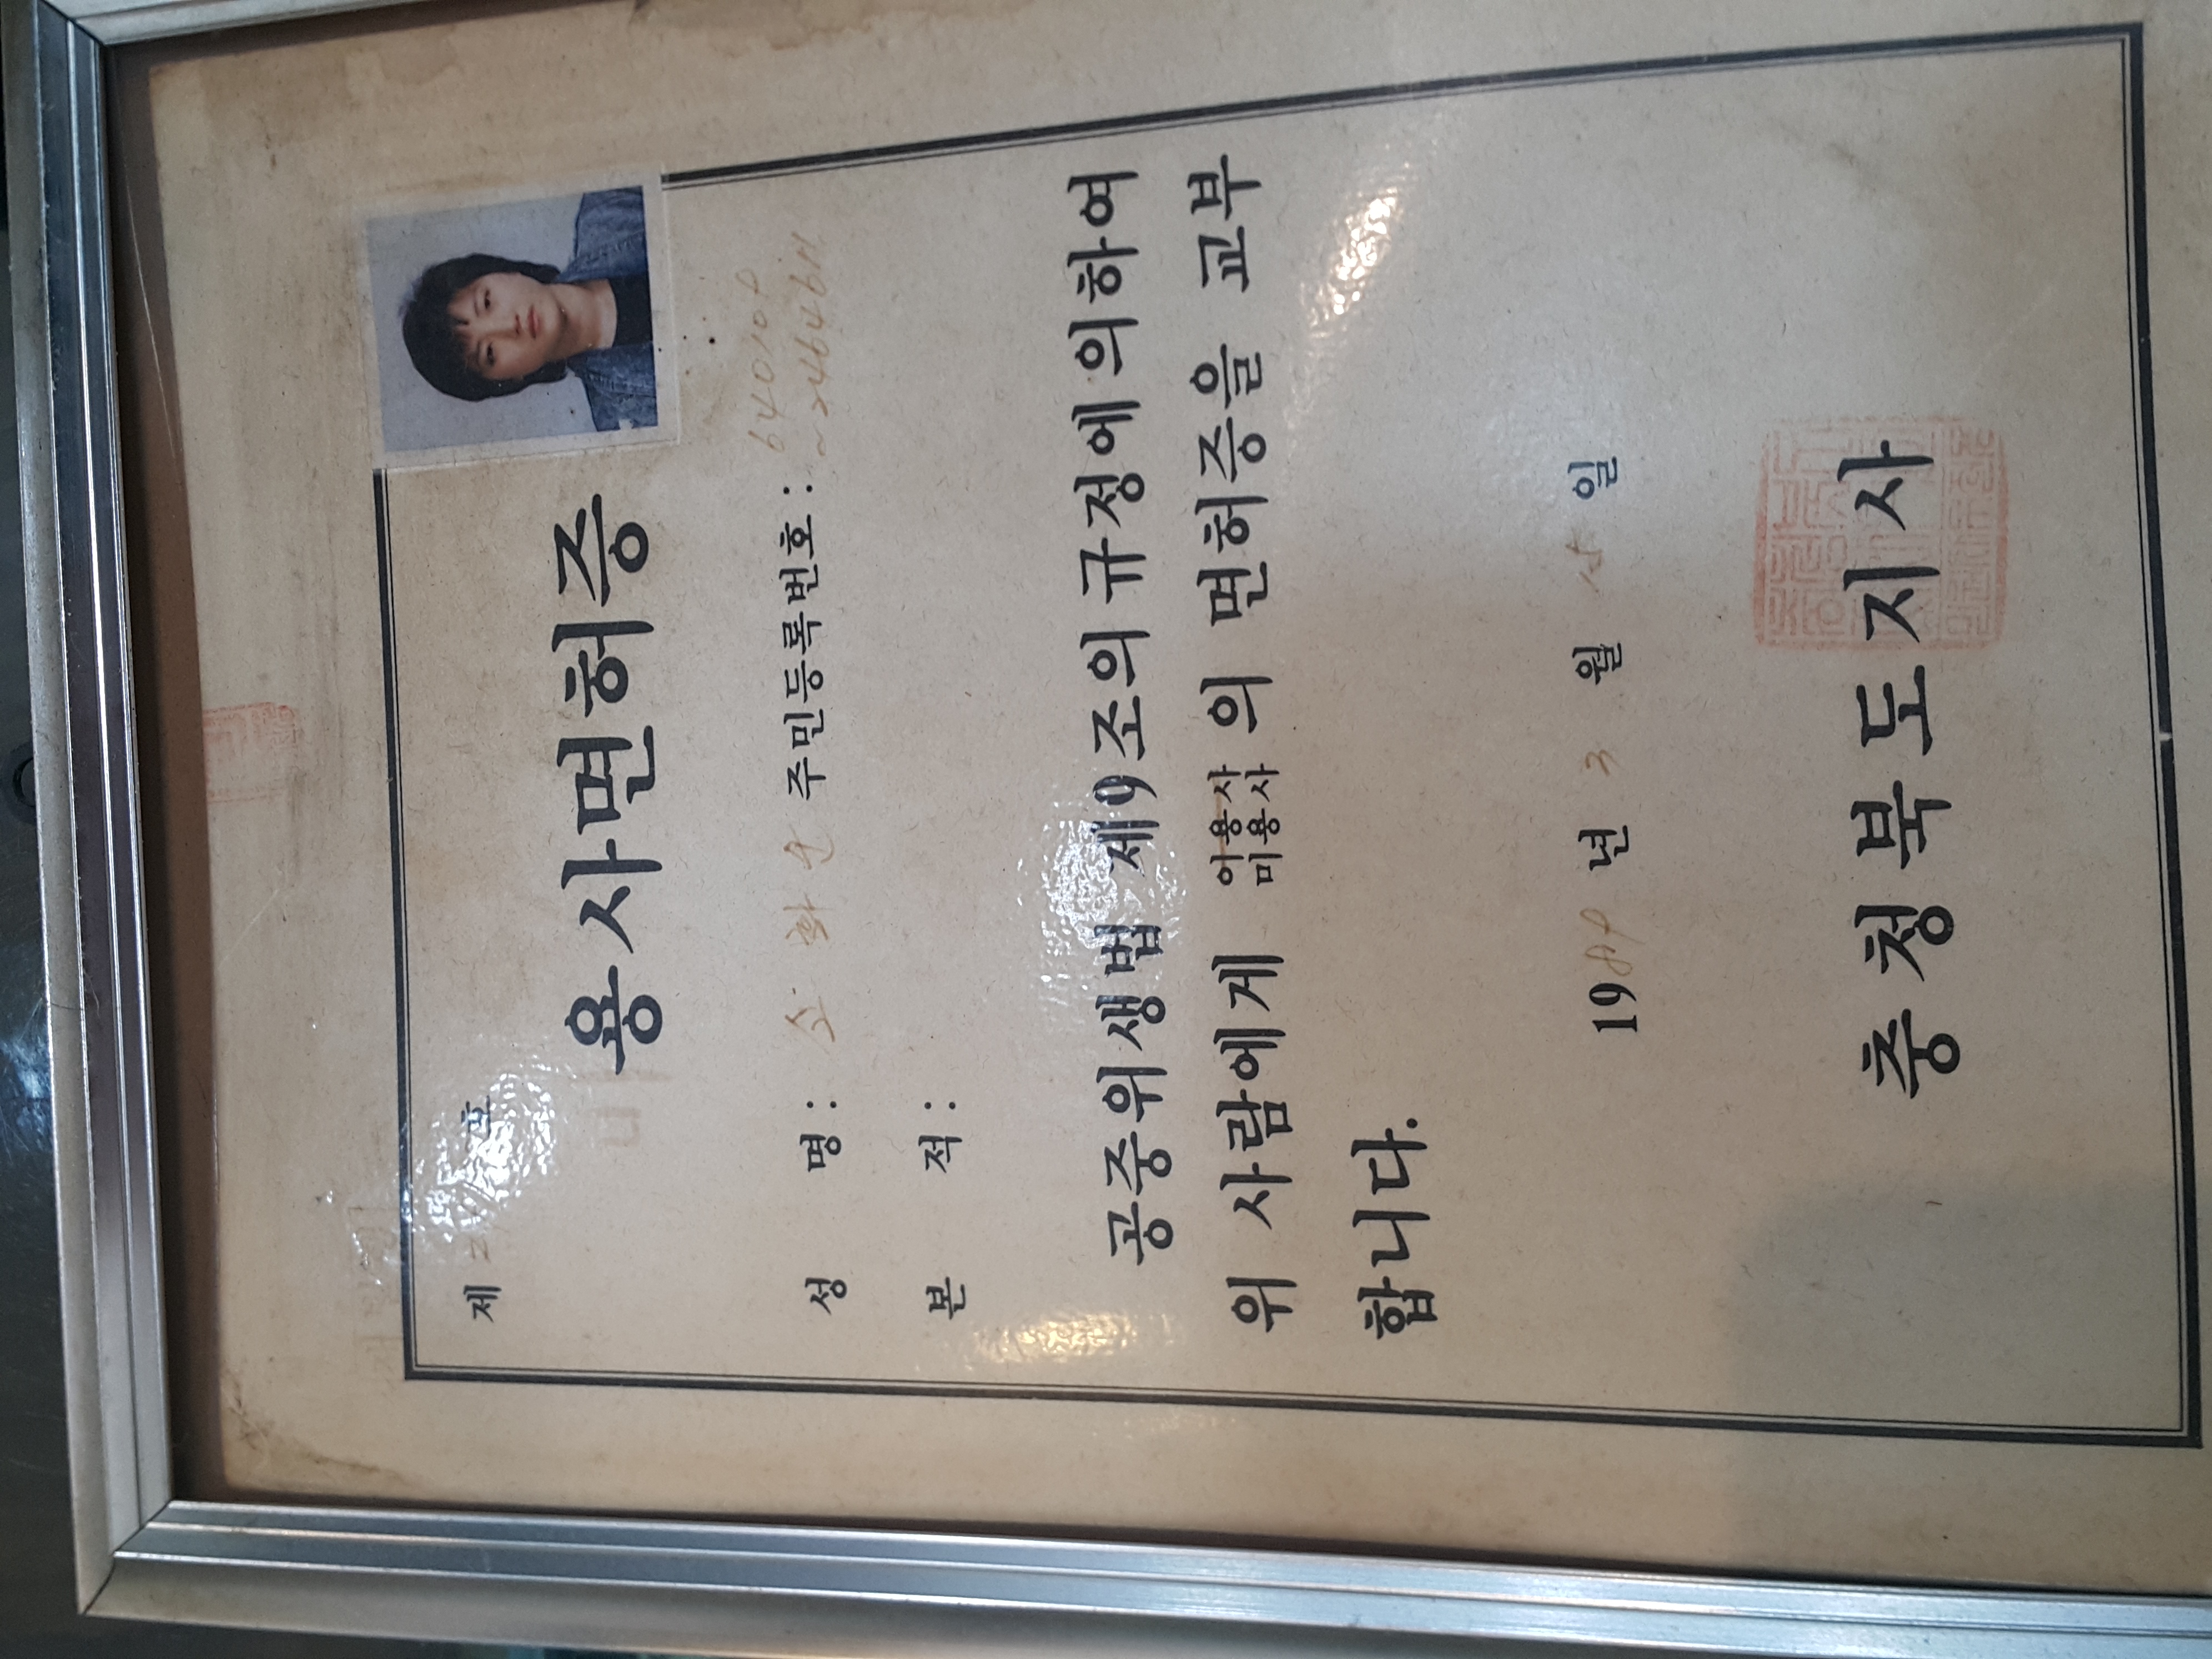 제 호
미용사면허증
성 명: 소 화 순 주민등록번호:
본 적:
공중위생법 제9조의 규정에 의하여
위 사람에게 이용사 미용사 의 면허증을 교부
합니다.
1989년 3월 15일
충청북도지사